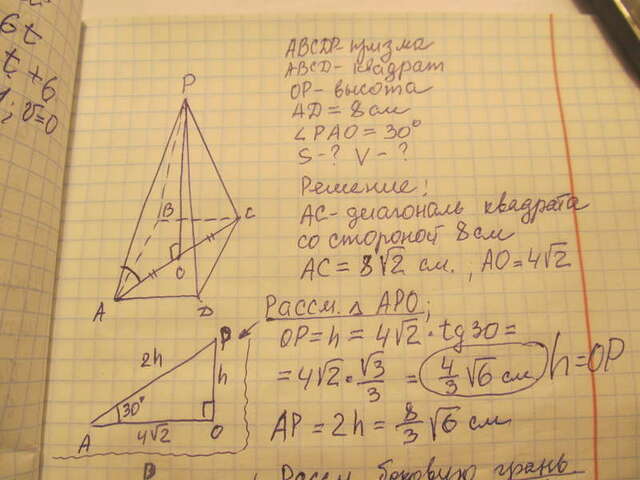 6t
t+6
v=0
ABCDP-призма
ABCD-квадрат
OP-высота
AD=8см
∠PAO=30°
S-? V-?
Решение:
AC-диагональ квадрата
со стороной 8см
AC=8√2 см. ; AO=4√2
Рассм. △ APO;
OP=h=4√2·tg30=
=4√2·√3/3 = 4/3√6 см h=OP
AP=2h=8/3√6 см
Рассм. боковую грань
P
B
C
O
A
D
P
2h
h
30°
A
4√2
O